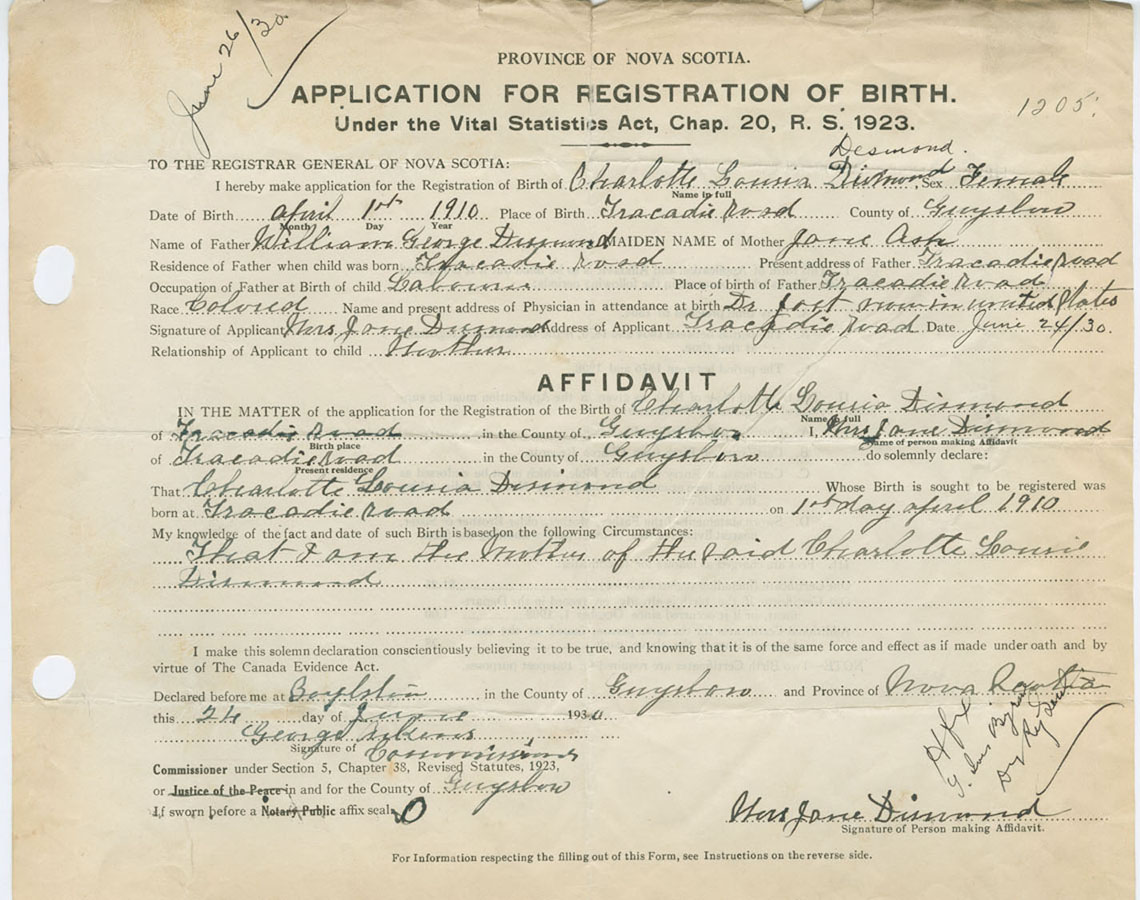 June 26/30
PROVINCE OF NOVA SCOTIA.
APPLICATION FOR REGISTRATION OF BIRTH.
1205
Under the Vital Statistics Act, Chap. 20, R. S. 1923.
Desmond.
TO THE REGISTRAR GENERAL OF NOVA SCOTIA:
I hereby make application for the Registration of Birth of Charlotte Lousia Dismond Sex Female
Name in full
Date of Birth April 1st 1910 Place of Birth Tracadie Road County of Guysboro
Month Day Year
Name of Father William George Dismond MAIDEN NAME of Mother Jane Ash
Residence of Father when child was born Tracadie Road Present address of Father Tracadie Road
Occupation of Father at Birth of child Labourer Place of birth of Father Tracadie Road
Race Colored Name and present address of Physician in attendance at birth Dr now in united States
Signature of Applicant Mrs Jane Dismond Address of Applicant Tracadie Road Date June 24/30.
Relationship of Applicant to child Mother
AFFIDAVIT
IN THE MATTER of the application for the Registration of the Birth of Charlotte Lousia Dismond
Name in full
of Tracadie Road in the County of Guysboro I, Mrs Jane Dismond
Birth place Name of person making Affidavit
of Tracadie Road in the County of Guysboro do solemnly declare:
Present residence
That Charlotte Lousia Dismond Whose Birth is sought to be registered was
born at Tracadie Road on 1st day april 1910
My knowledge of the fact and date of such Birth is based on the following Circumstances:
That I am the Mother of the said Charlotte Lousie
Dismond
I make this solemn declaration conscientiously believing it to be true, and knowing that it is of the same force and effect as if made under oath and by
virtue of The Canada Evidence Act.
Declared before me at Boylston in the County of Guysboro and Province of Nova Scotia
this 24 day of June 1930
George
Signature of Commissioner
Commissioner under Section 5, Chapter 38, Revised Statutes, 1923,
or Justice of the Peace in and for the County of Guysboro
If sworn before a Notary Public affix seal.
Mrs Jane Dismond
Signature of Person making Affidavit.
For Information respecting the filling out of this Form, see Instructions on the reverse side.